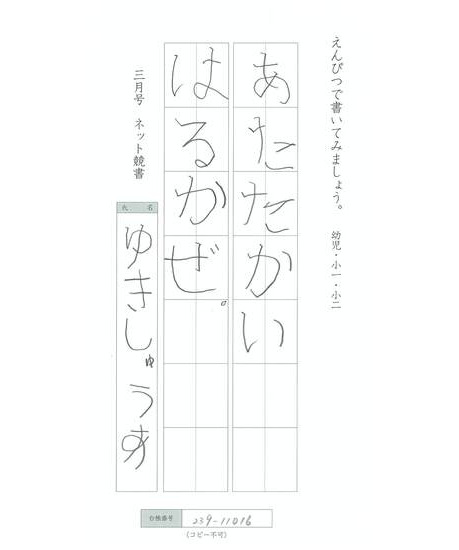 えんぴつで書いてみましょう。 幼児・小一・小二
あたたかい
はるかぜ。
三月号 ネット競書
氏名
ゆきしゅうま
台帳番号 239-11016
(コピー不可)